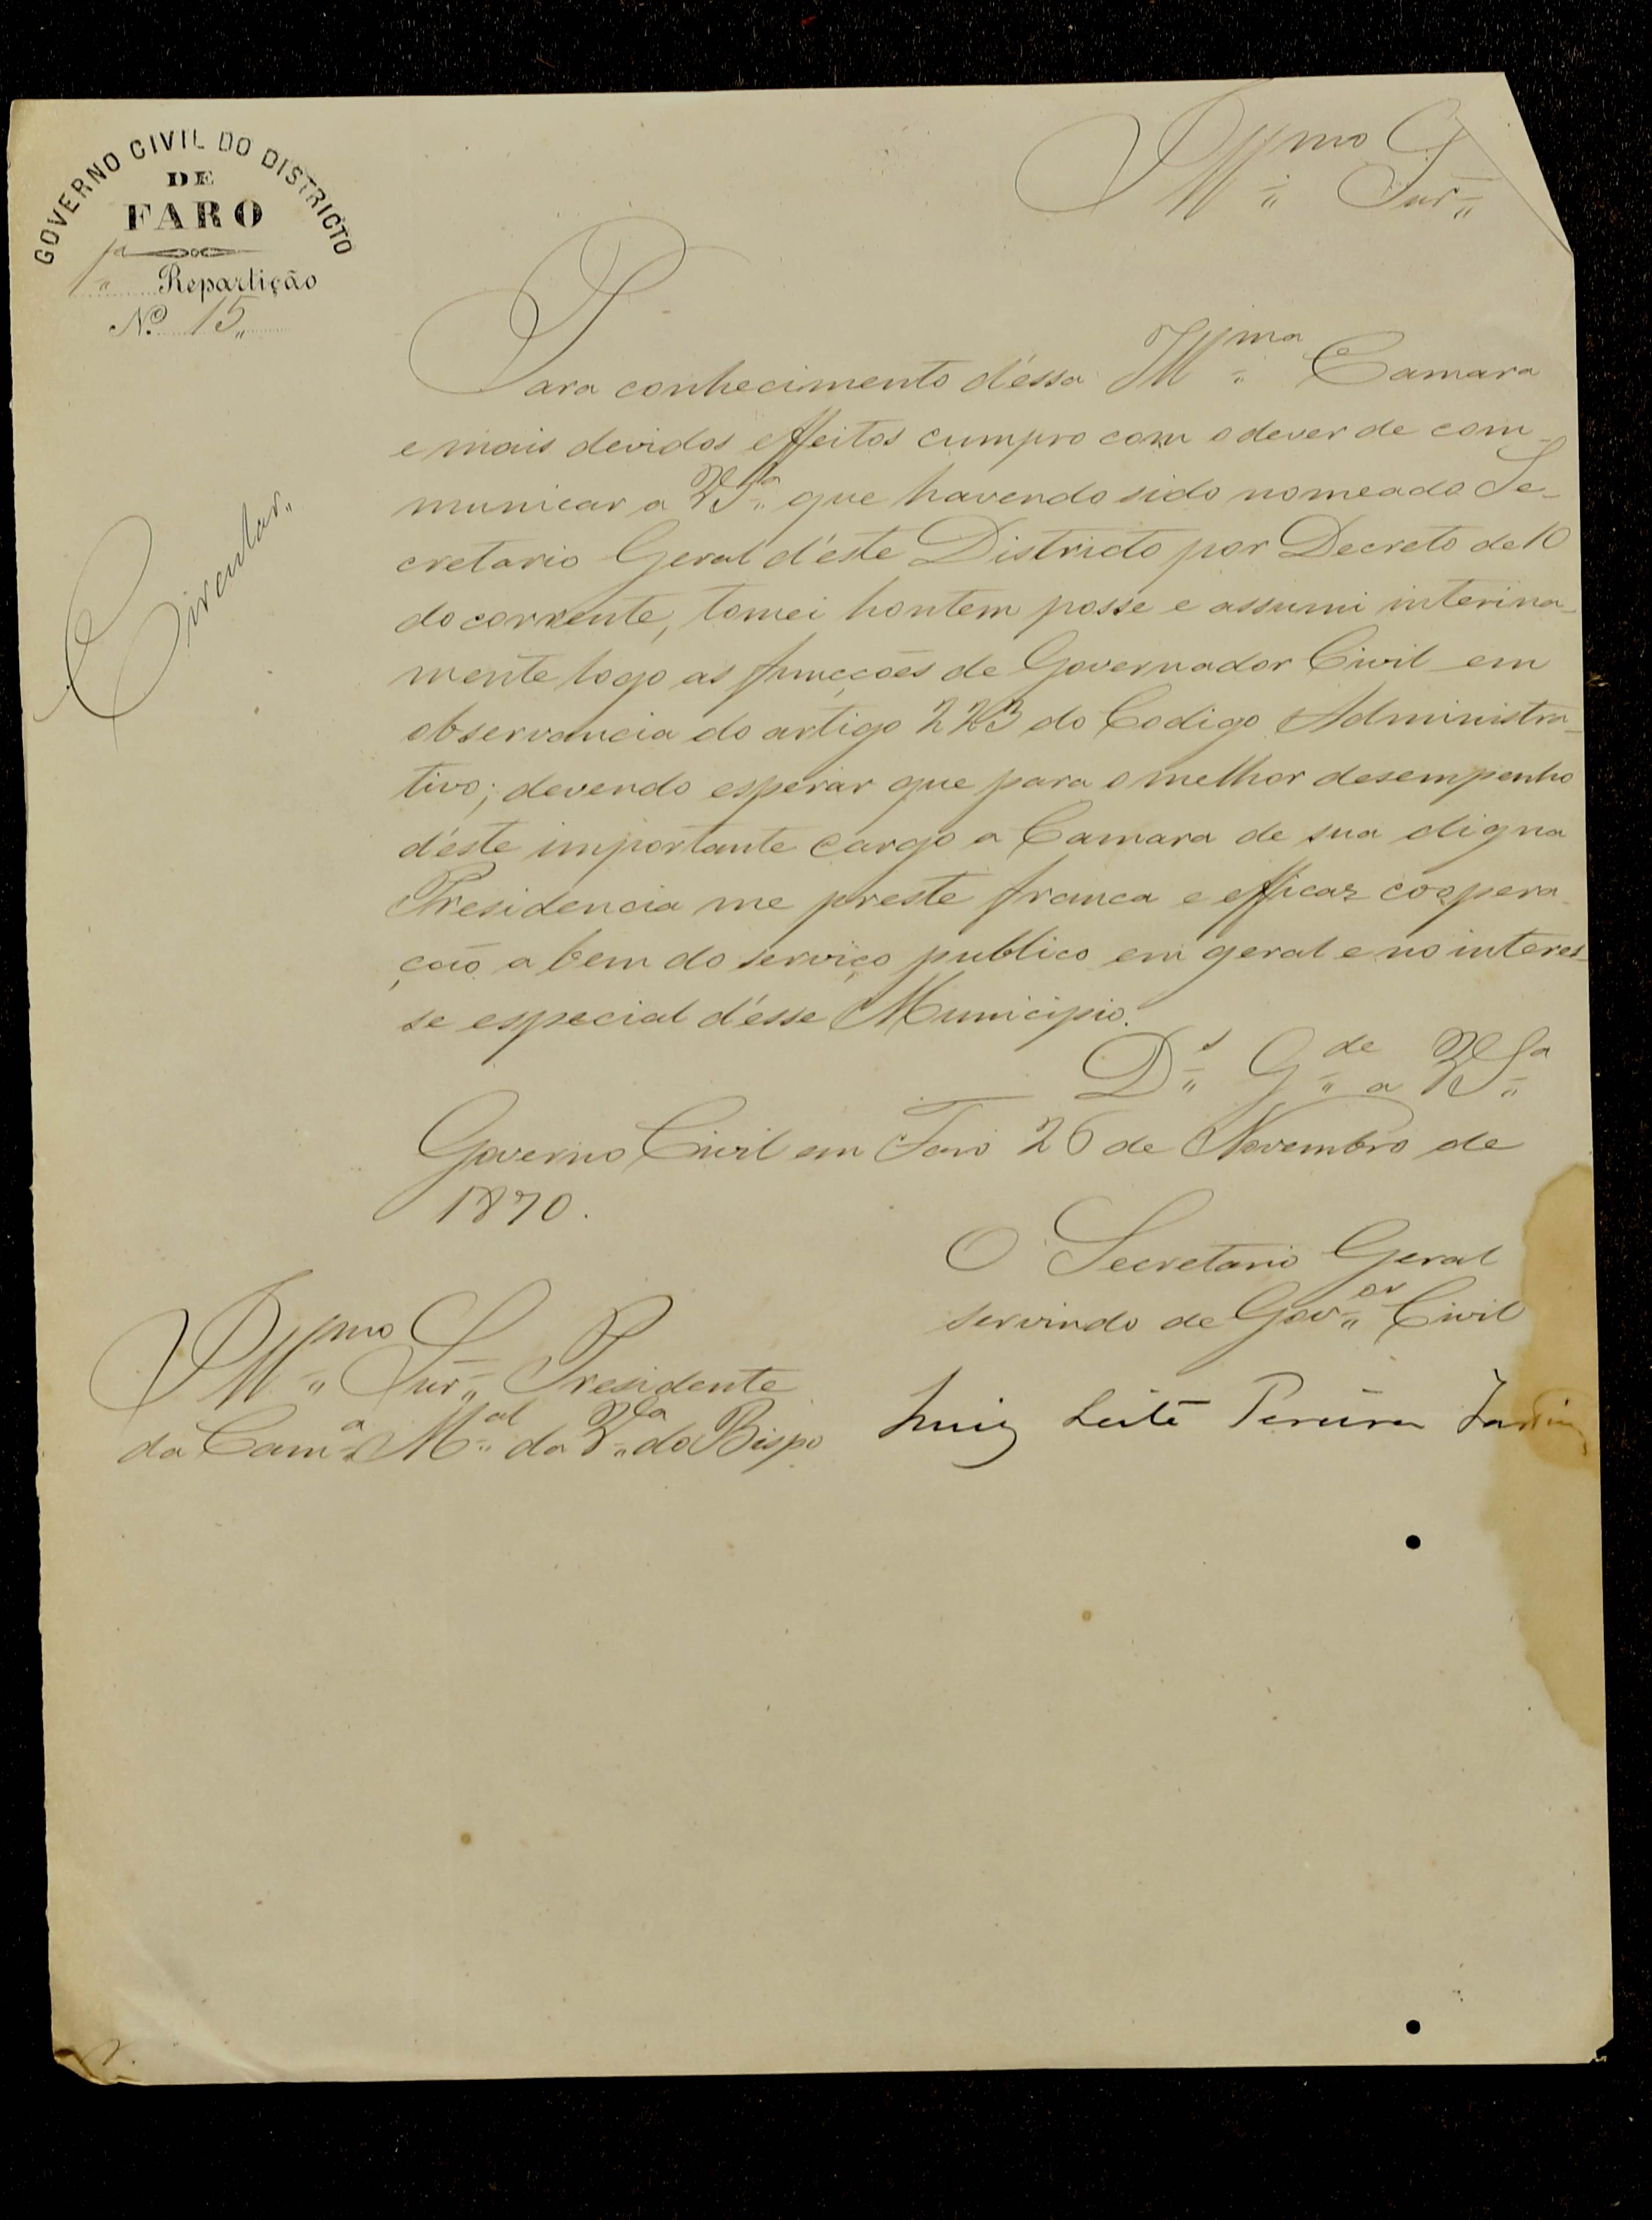 GOVERNO CIVIL DO DISTRICTO
DE
FARO
1ª Repartição
Nº 15
Illmo Snr
Circular
Para conhecimento d'éssa Illma Camara
e mais devidos effeitos cumpro com o dever de com-
municar a VSª que havendo sido nomeado Se-
cretario Geral d'éste Districto por Decreto de 10
do corrente, tomei hontem posse e assumi interina-
mente logo as funcções de Governador Civil em
observancia do artigo 223 do Codigo Administra-
tivo; devendo esperar que para o melhor desempenho
d'éste importante cargo a Camara de sua digna
Presidencia me preste franca e efficaz coopera-
ção a bem do serviço publico em geral e no interes-
se especial d'ésse Municipio.
Ds Gde a VSª
Governo Civil em Faro 26 de Novembro de
1870.
O Secretario Geral
servindo de Govor Civil
Illmo Snr Presidente
da Camª Mal da Vlª do Bispo
Luiz Leite Pereira